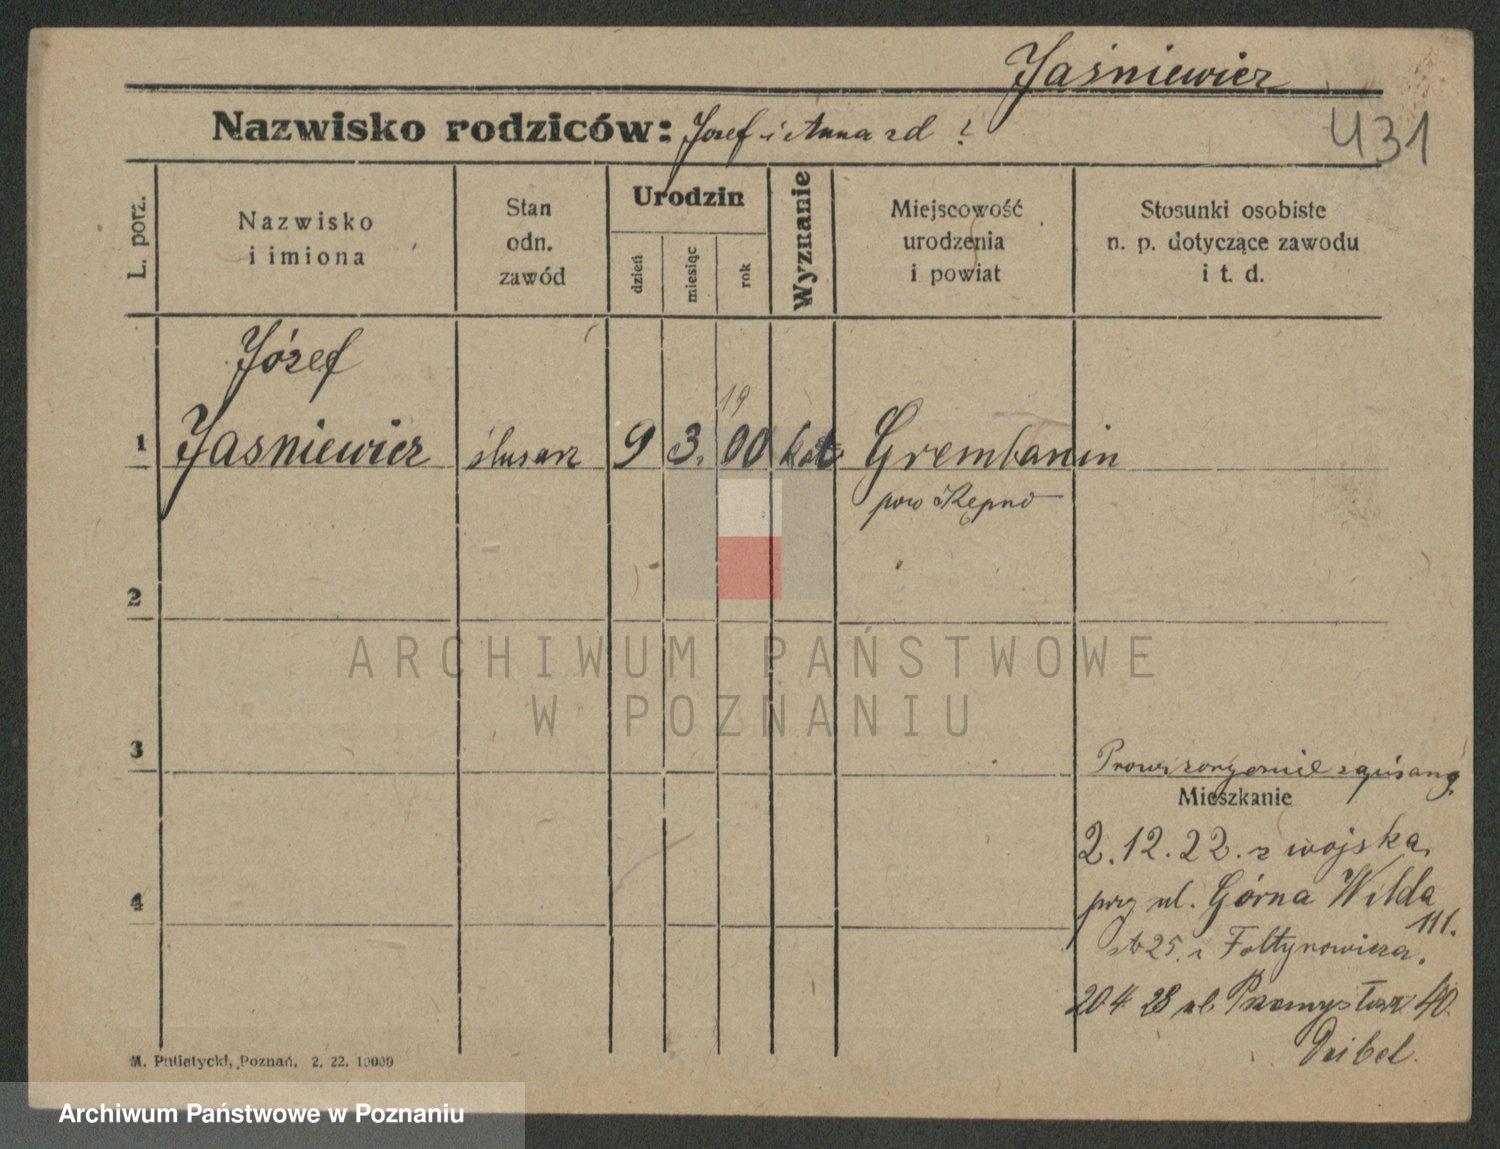 Jaśniewicz
Nazwisko rodziców: Józef i Anna zd ?
431
L. porz.
Nazwisko
i imiona
Stan
odn.
zawód
Urodzin
dzień
miesiąc
rok
Wyznanie
Miejscowość
urodzenia
i powiat
Stosunki osobiste
n. p. dotyczące zawodu
i t. d.
Józef
19
1 Jasniewicz ślusarz 9 3. 00 kat Grembanin
pow Kępno
2
3
Prowizorycznie zapisany
Mieszkanie
2.12.22. z wojska
przy ul. Górna Wilda
111.
4
25. Fołtynowicza.
20 4 28 ul Przemysłowa 40.
M. Putiatycki, Poznań. 2. 22. 10000
ARCHIWUM PAŃSTWOWE
W POZNANIU
Archiwum Państwowe w Poznaniu